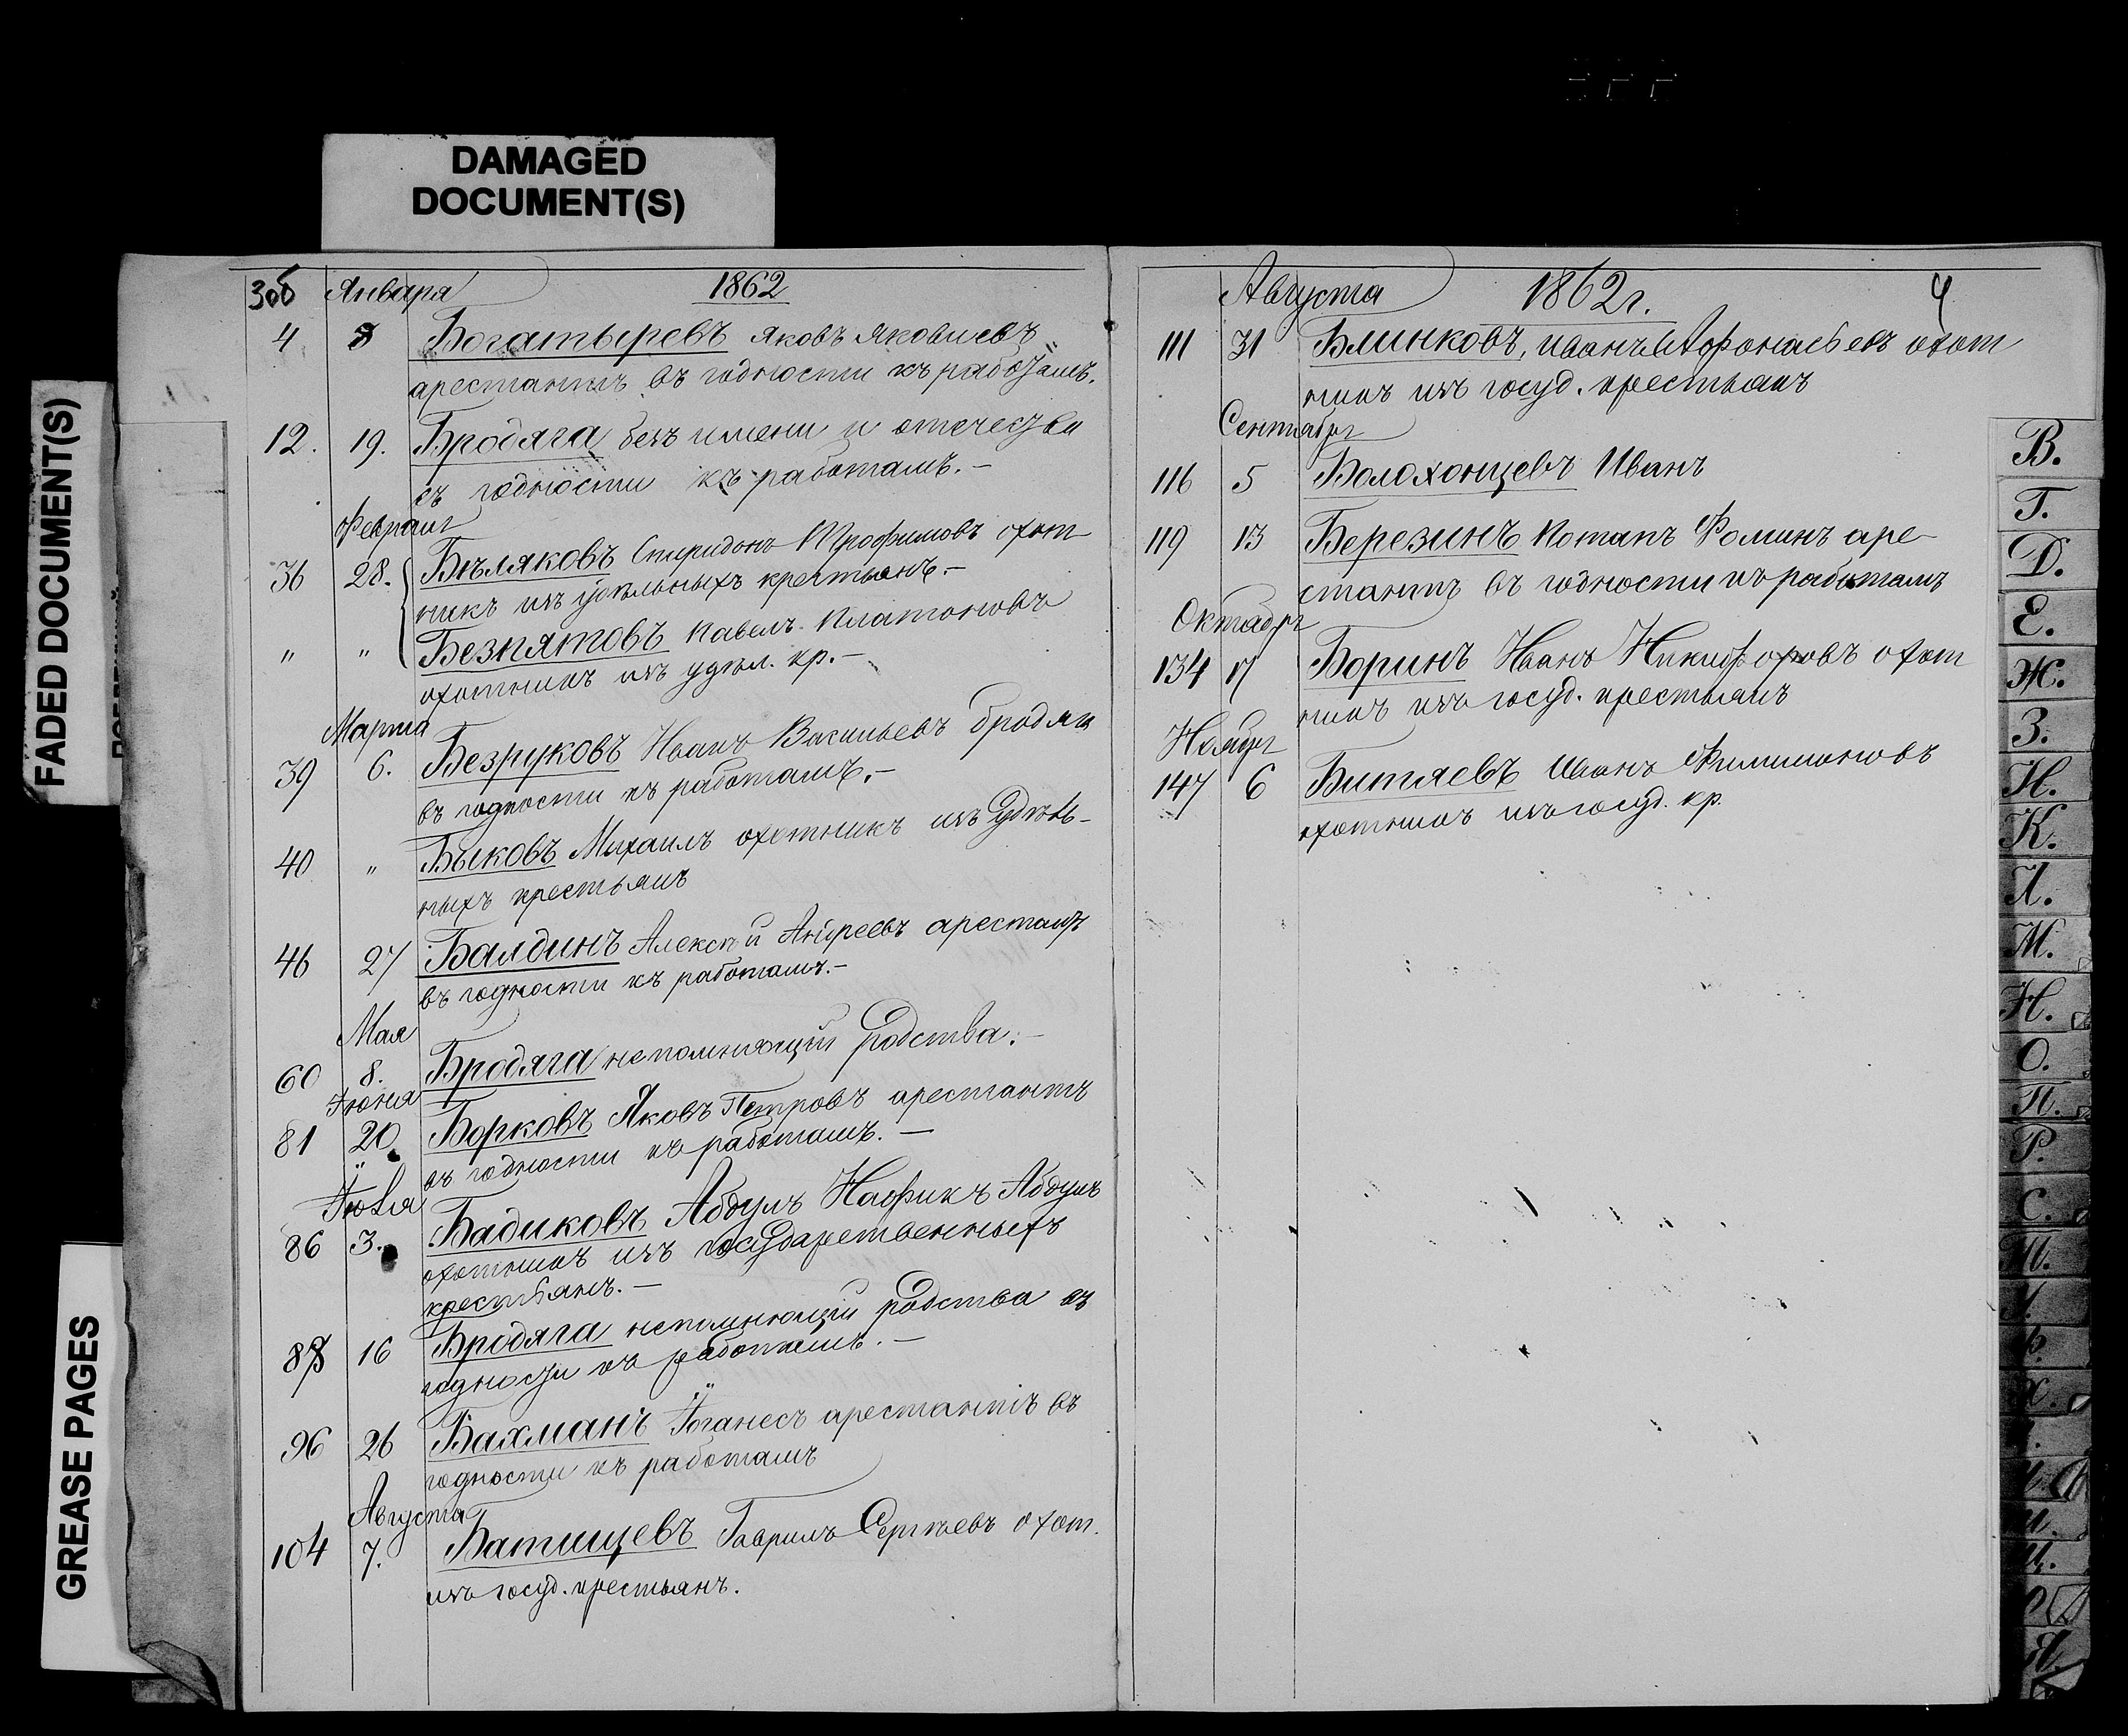 DAMAGED
DOCUMENT(S)
FADED DOCUMENT(S)
GREASE PAGES
3об Января 1862
4 8 Богатыревъ Яковъ Яковлевъ
арестантъ въ годности къ работамъ.
12. 19. Бродяга безъ имени и отечества
въ годности къ работамъ.-
Февраля
36 28. Бѣляковъ Спиридонъ Трофимовъ охот
никъ изъ удѣльныхъ крестьянъ.-
" " Безпятовъ Павелъ Платоновъ
охотникъ изъ удѣл. кр.-
Марта
39 6. Безруковъ Иванъ Васильевъ бродяга
въ годности къ работамъ.-
40 " Быковъ Михаилъ охотникъ изъ удѣль-
ныхъ крестьянъ
46 27 Балдинъ Алексѣй Андреевъ арестантъ
въ годности къ работамъ.-
Мая
60 8. Бродяга непомнящій родства.-
Іюня
81 20. Борковъ Яковъ Петровъ арестантъ
въ годности къ работамъ.-
Іюля
86 3. Бадиковъ Абдулъ Нафикъ Абдулъ
охотникъ изъ государственныхъ
крестьянъ.-
16 Бродяга непомнющій родства въ
годности къ работамъ.-
96 26 Бахманъ Іоганесъ арестантъ въ
годности къ работамъ
Августа
104 7. Батищевъ Гаврилъ Сергѣевъ охот.
изъ госуд. крестьянъ.
Августа 1862г. 4
111 31 Блинковъ, Иванъ Афонасьевъ охот
никъ изъ госуд. крестьянъ
Сентября
116 5 Болохонцевъ Иванъ
119 13 Березинъ Потапъ Фоминъ аре-
стантъ въ годности къ работамъ
Октября
134 17 Боринъ Иванъ Никифоровъ охот
никъ изъ госуд. крестьянъ
Ноября
147 6 Битяевъ Иванъ Филимоновъ
охотникъ изъ госуд. кр.
В.
Г.
Д.
Е.
Ж.
З.
И.
К.
Л.
М.
Н.
О.
П.
Р.
С.
Т.
У.
Ф.
Х.
Я.